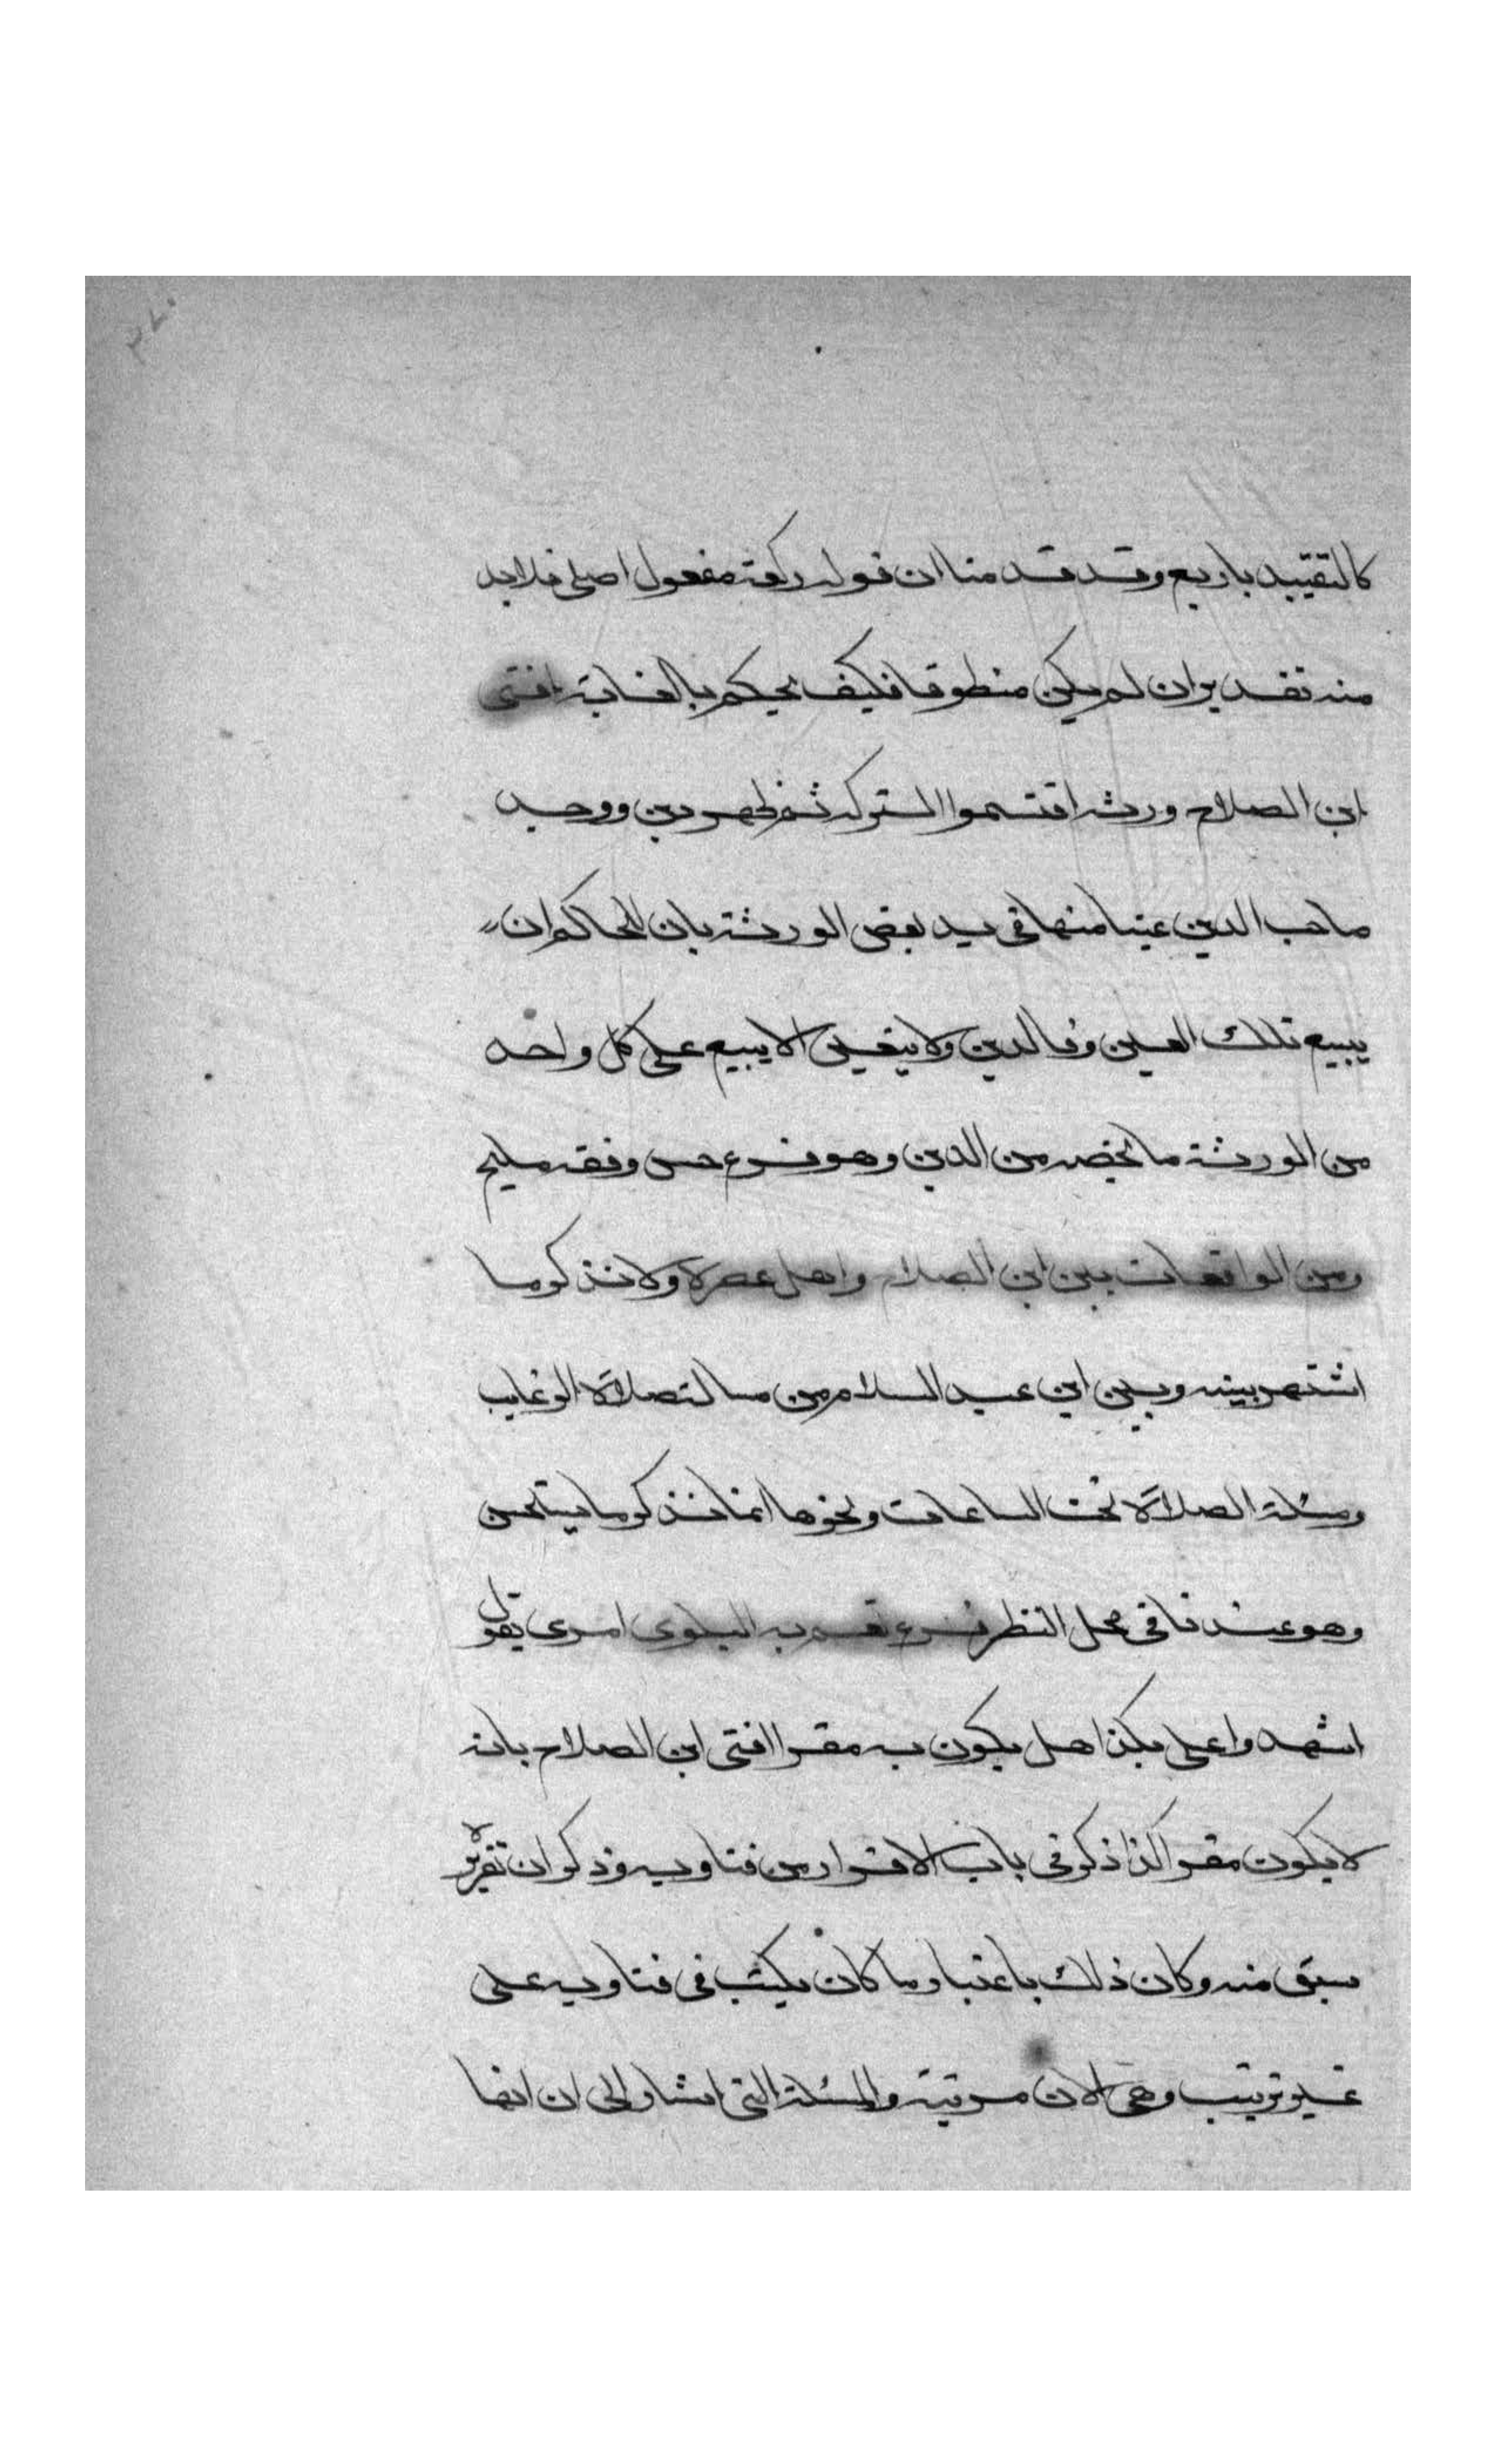 كالتقييد باربع وقد قدمنا ان قوله ركعة مفعول اصلي فلا بد
منه تقديران لم يكن منطوقا فكيف يحكم بالغاية افتى
ابن الصلاح ورثه اقتسموا التركه ثم ظهر دين ووجد
صاحب الدين عينا منها في يد بعض الورثة بان للحاكم ان
يبيع تلك العين وفا الدين ولا يتعين الا يبيع على كل واحد
من الورثة ما يخصه من الدين وهو فرع حسن وفقه مليح
ومن الواقعات بين ابن الصلاح واهل عصره ولا نذكر ما
اشتهر بينه وبين ابن عبد السلام من مسالة صلاة الرغايب
ومسئلة الصلاة تحت الساعات ونحوها انما نذكر ما يستحسن
وهو عندنا في محل النظر فرع تعم به البلوى امرى يقول
اشهدوا على بكذا هل يكون به مقرا افتى ابن الصلاح بانه
لا يكون مقرا كذا ذكر في باب الاقرار من فتاويه وذكر ان تقريره
سبق منه وكان ذلك باعتبار ما كان يكتب في فتاويه على
غير ترتيب وهي الان مرتبة والمسئلة التي اشار الى ان انها